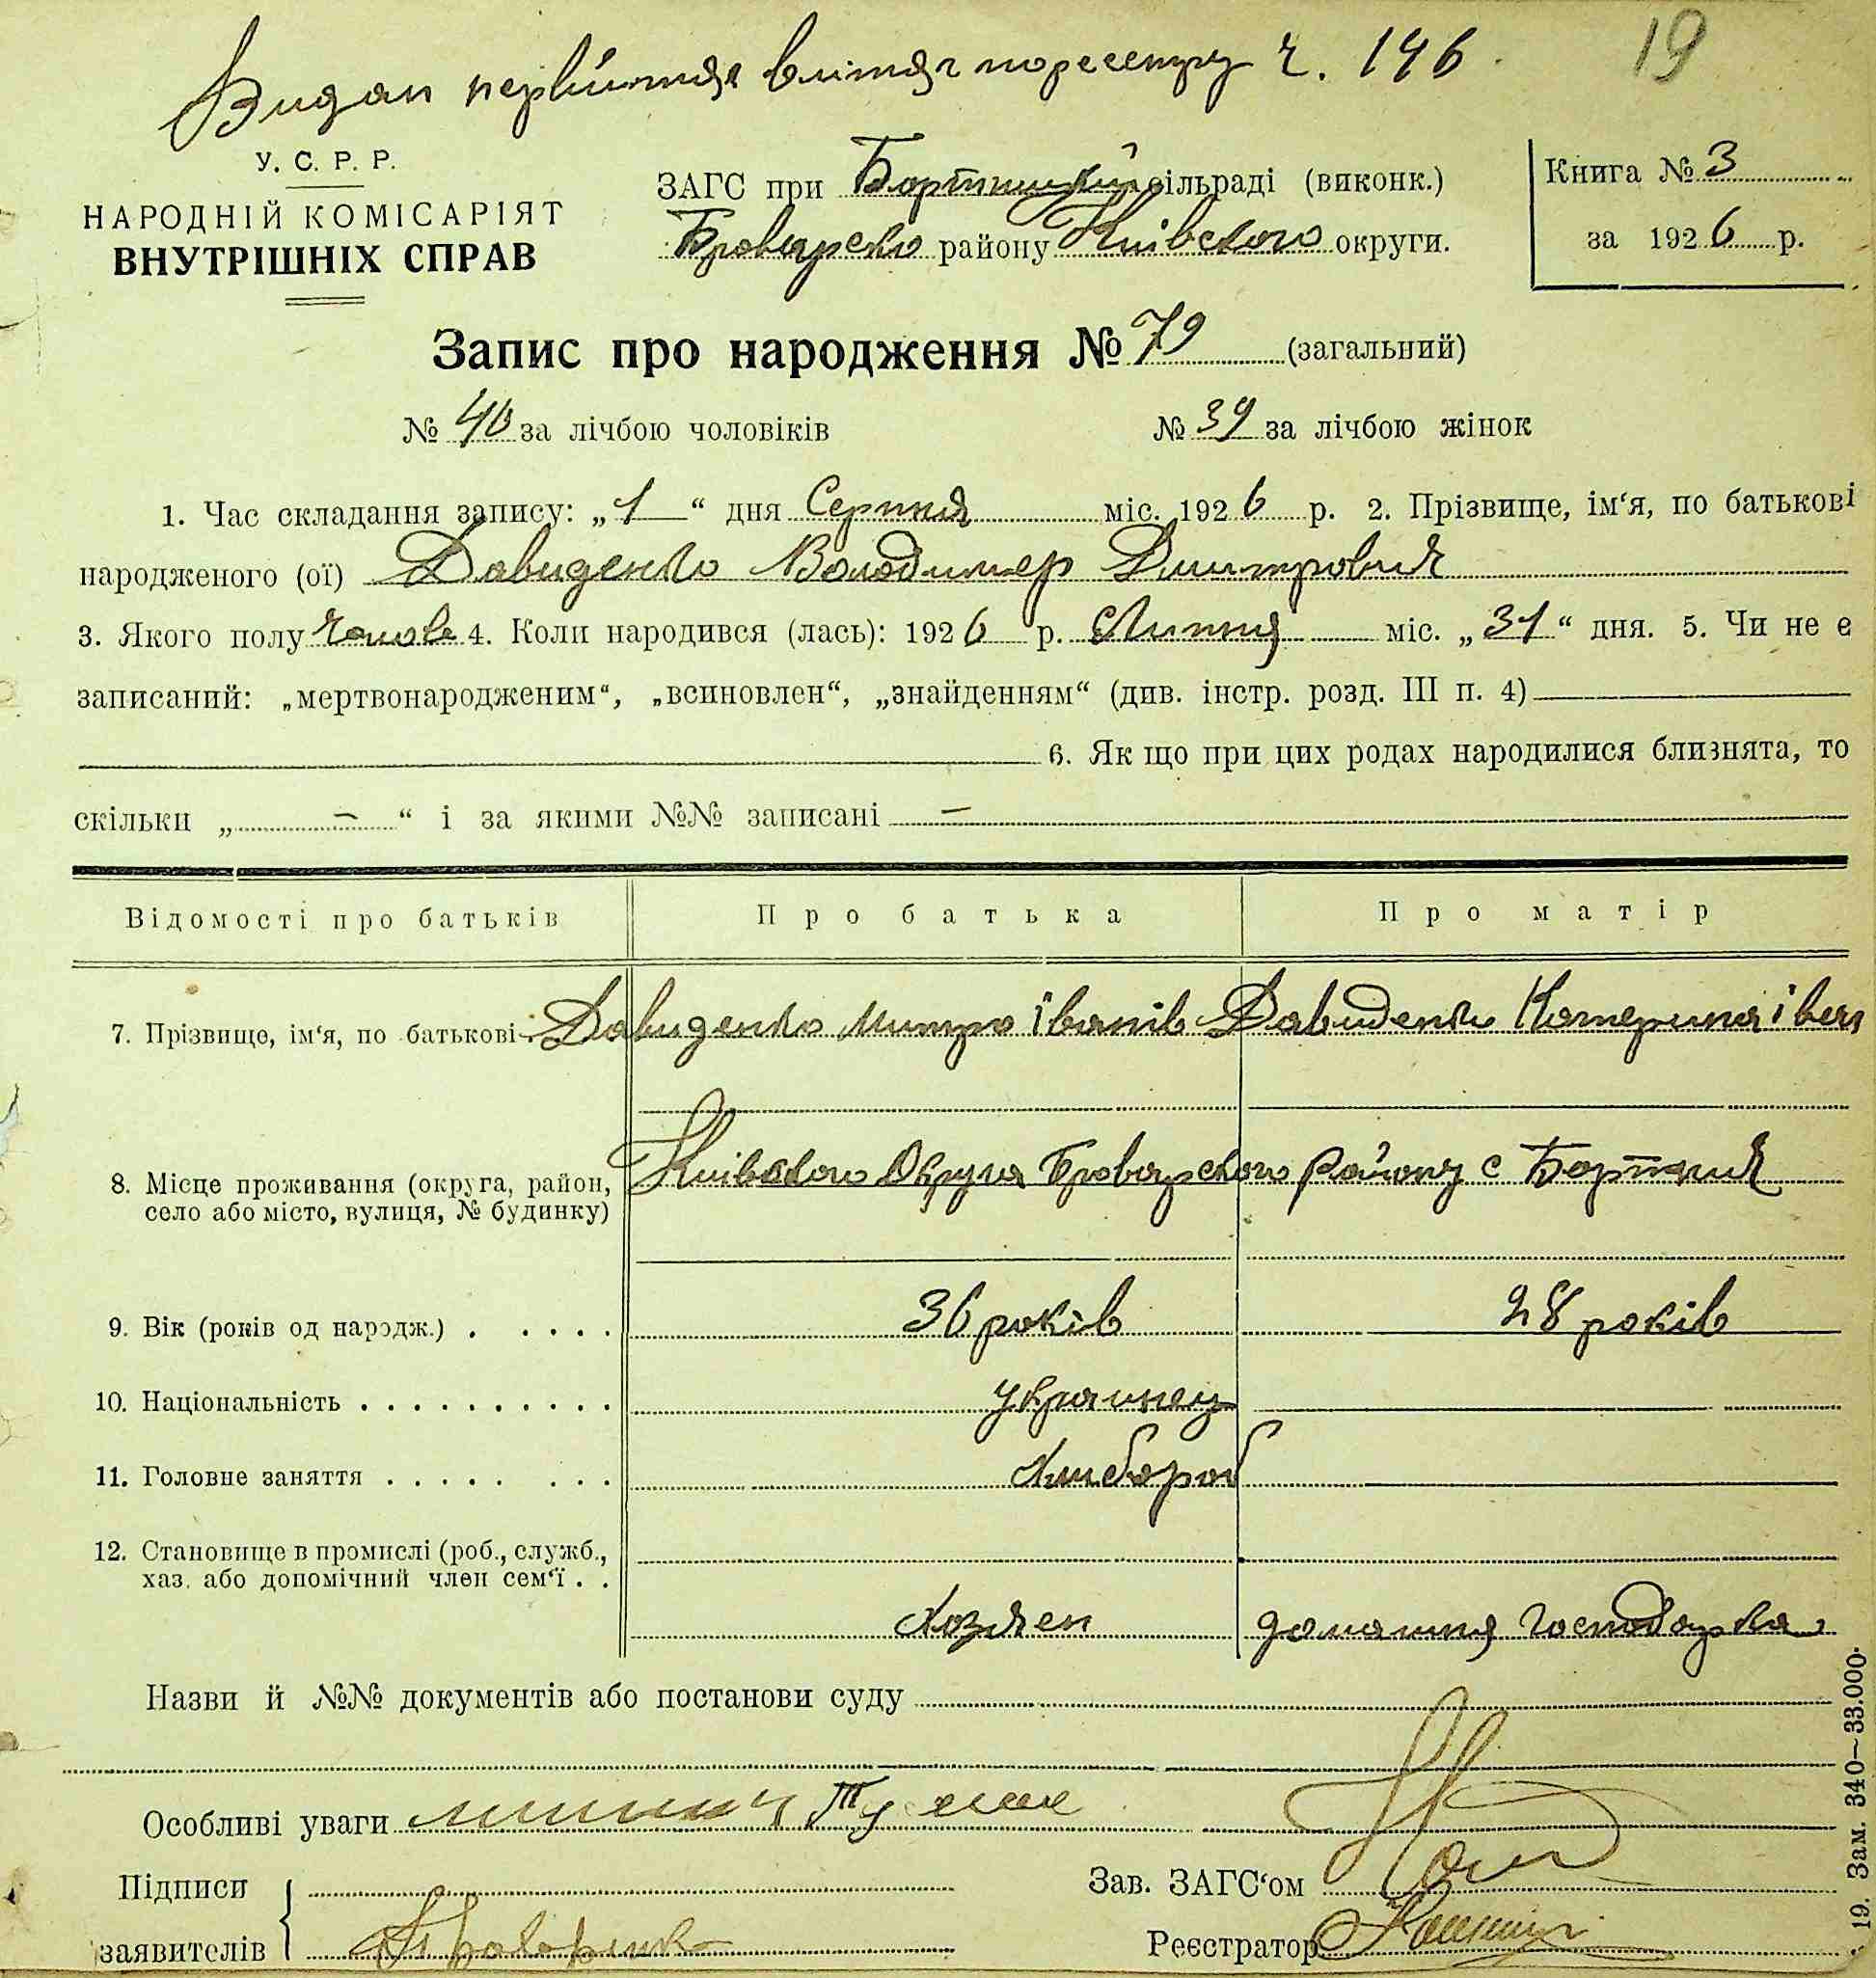 Видан первістня витяг по реєстру ч. 146. 19
У. С. Р. Р.
НАРОДНІЙ КОМІСАРІЯТ
ВНУТРІШНІХ СПРАВ
ЗАГС при Бортницкій сільраді (виконк.)
Броварсько району Київского округи.
Книга № 3
за 1926 р.
Запис про народження № 79 (загальний)
№ 40 за лічбою чоловіків № 39 за лічбою жінок
1. Час складання запису: „1“ дня Серпня міс. 1926 р. 2. Прізвище, ім‘я, по батькові
народженого (ої) Давиденко Володимер Дмитрович
3. Якого полу чолов 4. Коли народився (лась): 1926 р. Липня міс. „31“ дня. 5. Чи не є
записаний: „мертвонародженим“, „всиновлен“, „знайденням“ (див. інстр. розд. III п. 4)
6. Як що при цих родах народилися близнята, то
скільки „ – “ і за якими №№ записані –
Відомості про батьків Про батька Про матір
7. Прізвище, ім‘я, по батькові Давиденко Митро Іванів Давиденко Катерина Іван
8. Місце проживання (округа, район, Київского Округа Броварского Району с Бортнич
село або місто, вулиця, № будинку)
9. Вік (років од народж.) . . . . . 36 років 28 років
10. Національність . . . . . . . . . . украинец
11. Головне заняття . . . . . . . . Хлибороб
12. Становище в промислі (роб., служб.,
хаз. або допомічний член сем‘ї . .
Хозяен домашня господарка
Назви й №№ документів або постанови суду
Особливі уваги
Підписи
заявителів
Зав. ЗАГС‘ом
Реєстратор
19. Зам. 340–33.000.